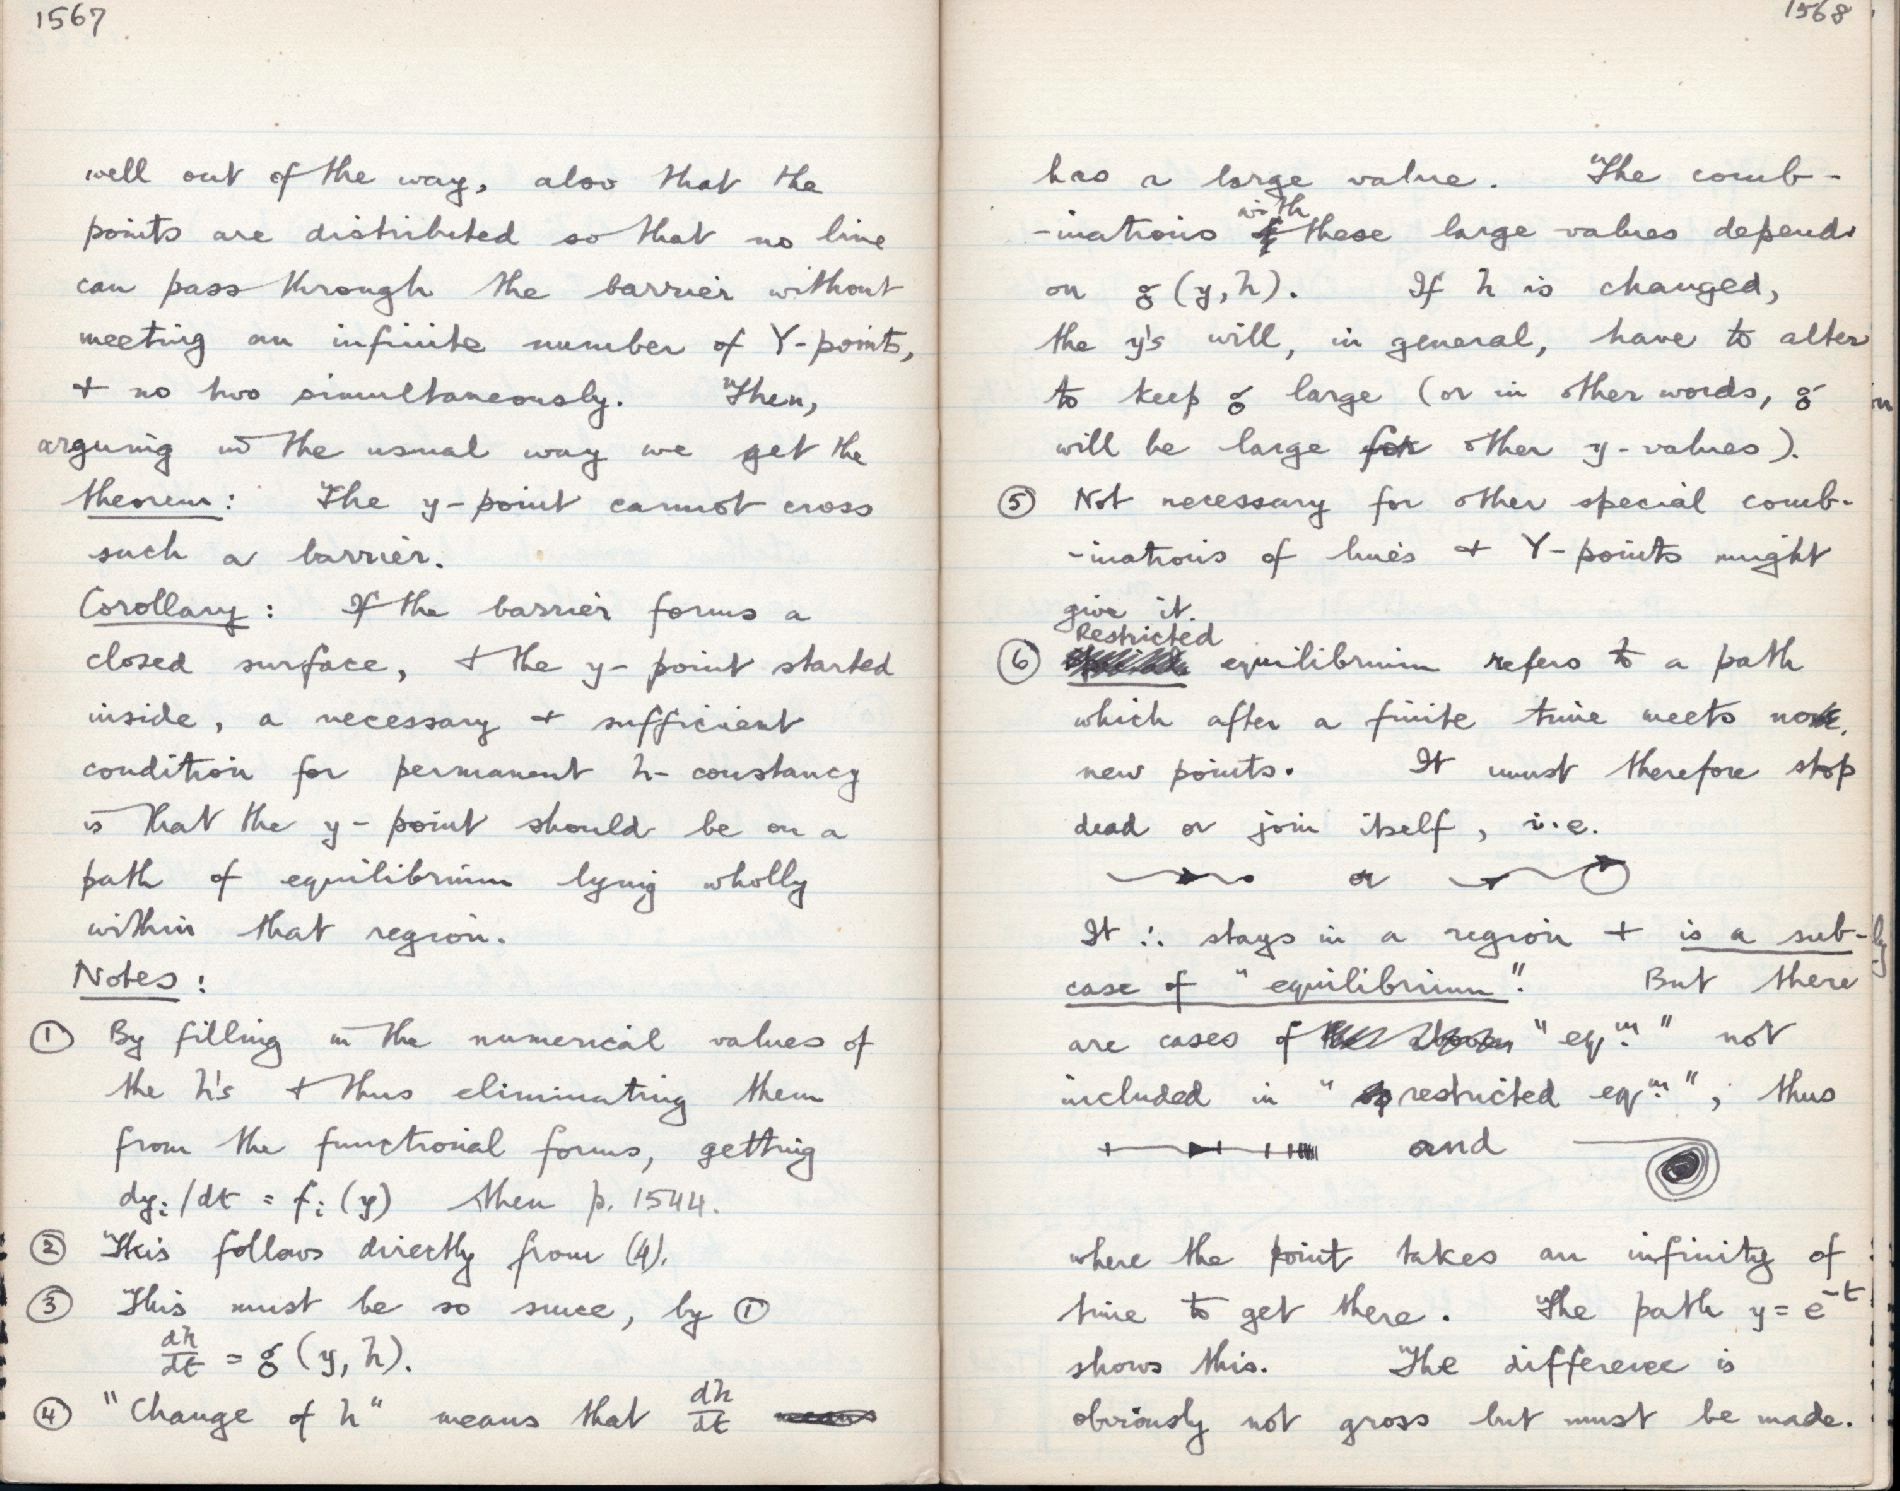 1567
well out of the way, also that the
points are distributed so that no line
can pass through the barrier without
meeting an infinite number of Y-points,
+ no two simultaneously. Then,
arguing in the usual way we get the
theorem: The y-point cannot cross
such a barrier.
Corollary: If the barrier forms a
closed surface, + the y-point started
inside, a necessary + sufficient
condition for permanent h-constancy
is that the y-point should be on a
path of equilibrium lying wholly
within that region.
Notes:
① By filling in the numerical values of
the h's + thus eliminating them
from the functional forms, getting
dyᵢ/dt = fᵢ(y) then p. 1544.
② This follows directly from (4).
③ This must be so since, by ①
dh/dt = g(y,h).
④ "Change of h" means that dh/dt means
1568
has a large value. The comb-
-inations with these large values depends
on g(y,h). If h is changed,
the y's will, in general, have to alter
to keep g large (or in other words, g
will be large for other y-values).
⑤ Not necessary for other special comb-
-inations of lines + Y-points might
give it.
⑥ Restricted equilibrium refers to a path
which after a finite time meets no
new points. It must therefore stop
dead or join itself, i.e.
or
It ∴ stays in a region + is a sub-
case of "equilibrium". But there
are cases of "eqᵐ." not
included in "restricted eqᵐ.", thus
and
where the point takes an infinity of
time to get there. The path y = e⁻ᵗ
shows this. The difference is
obviously not gross but must be made.